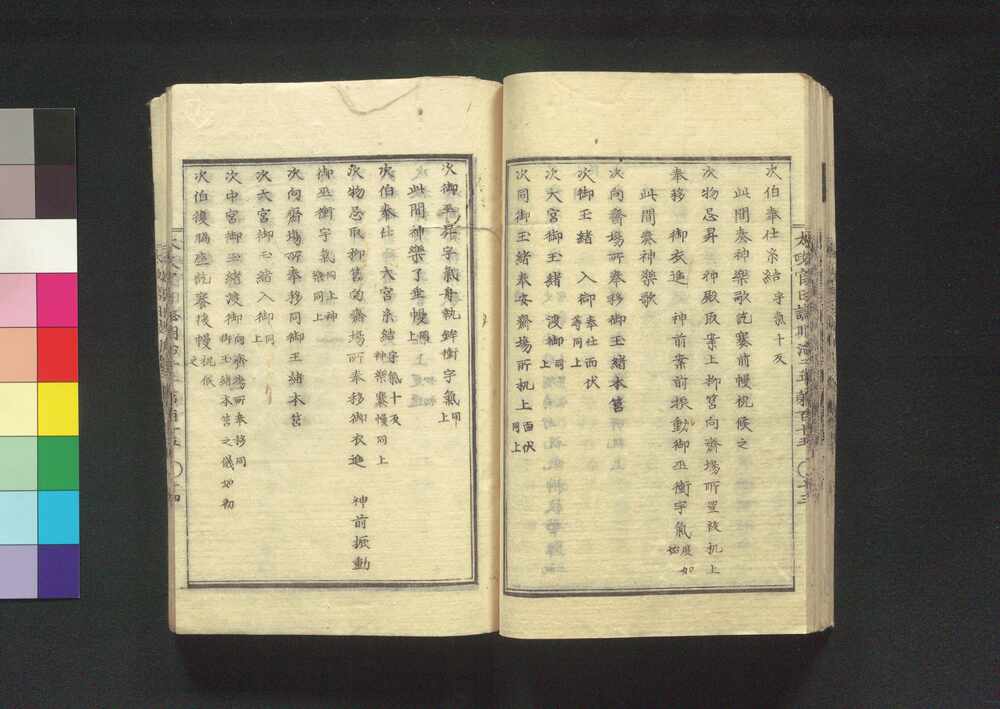 太政官日誌明治二年第百十五
次伯奉仕糸結 宇氣十反
此間奏神樂歌訖褰前幔祝候之
次物忌昇 神殿取案上柳筥向齋場所置設机上
奉移 御衣進 神前案前振動御巫衝宇氣 度如始
此間奏神樂歌
次向齋場所奉移御玉緒本筥
次御玉緒 入御 奉仕面伏等同上
次大宮御玉緒 渡御 同上
次同御玉緒奉安齋場所机上 面伏同上
次御巫昇宇氣舟執鉾衝宇氣 同上
此間神樂了垂幔 上
次伯奉仕 大宮糸結 宇氣十反神樂褰幔同上
次物忌取柳筥向齋場所奉移御衣進 神前振動
御巫衝宇氣 同上神樂同上
次向齋場所奉移同御玉緒本筥
次大宮御玉緒入御 同上
次中宮御玉緒渡御 向齋場所奉移同御玉緒本筥之儀如初
次伯復膝座訖褰後幔 祝候之